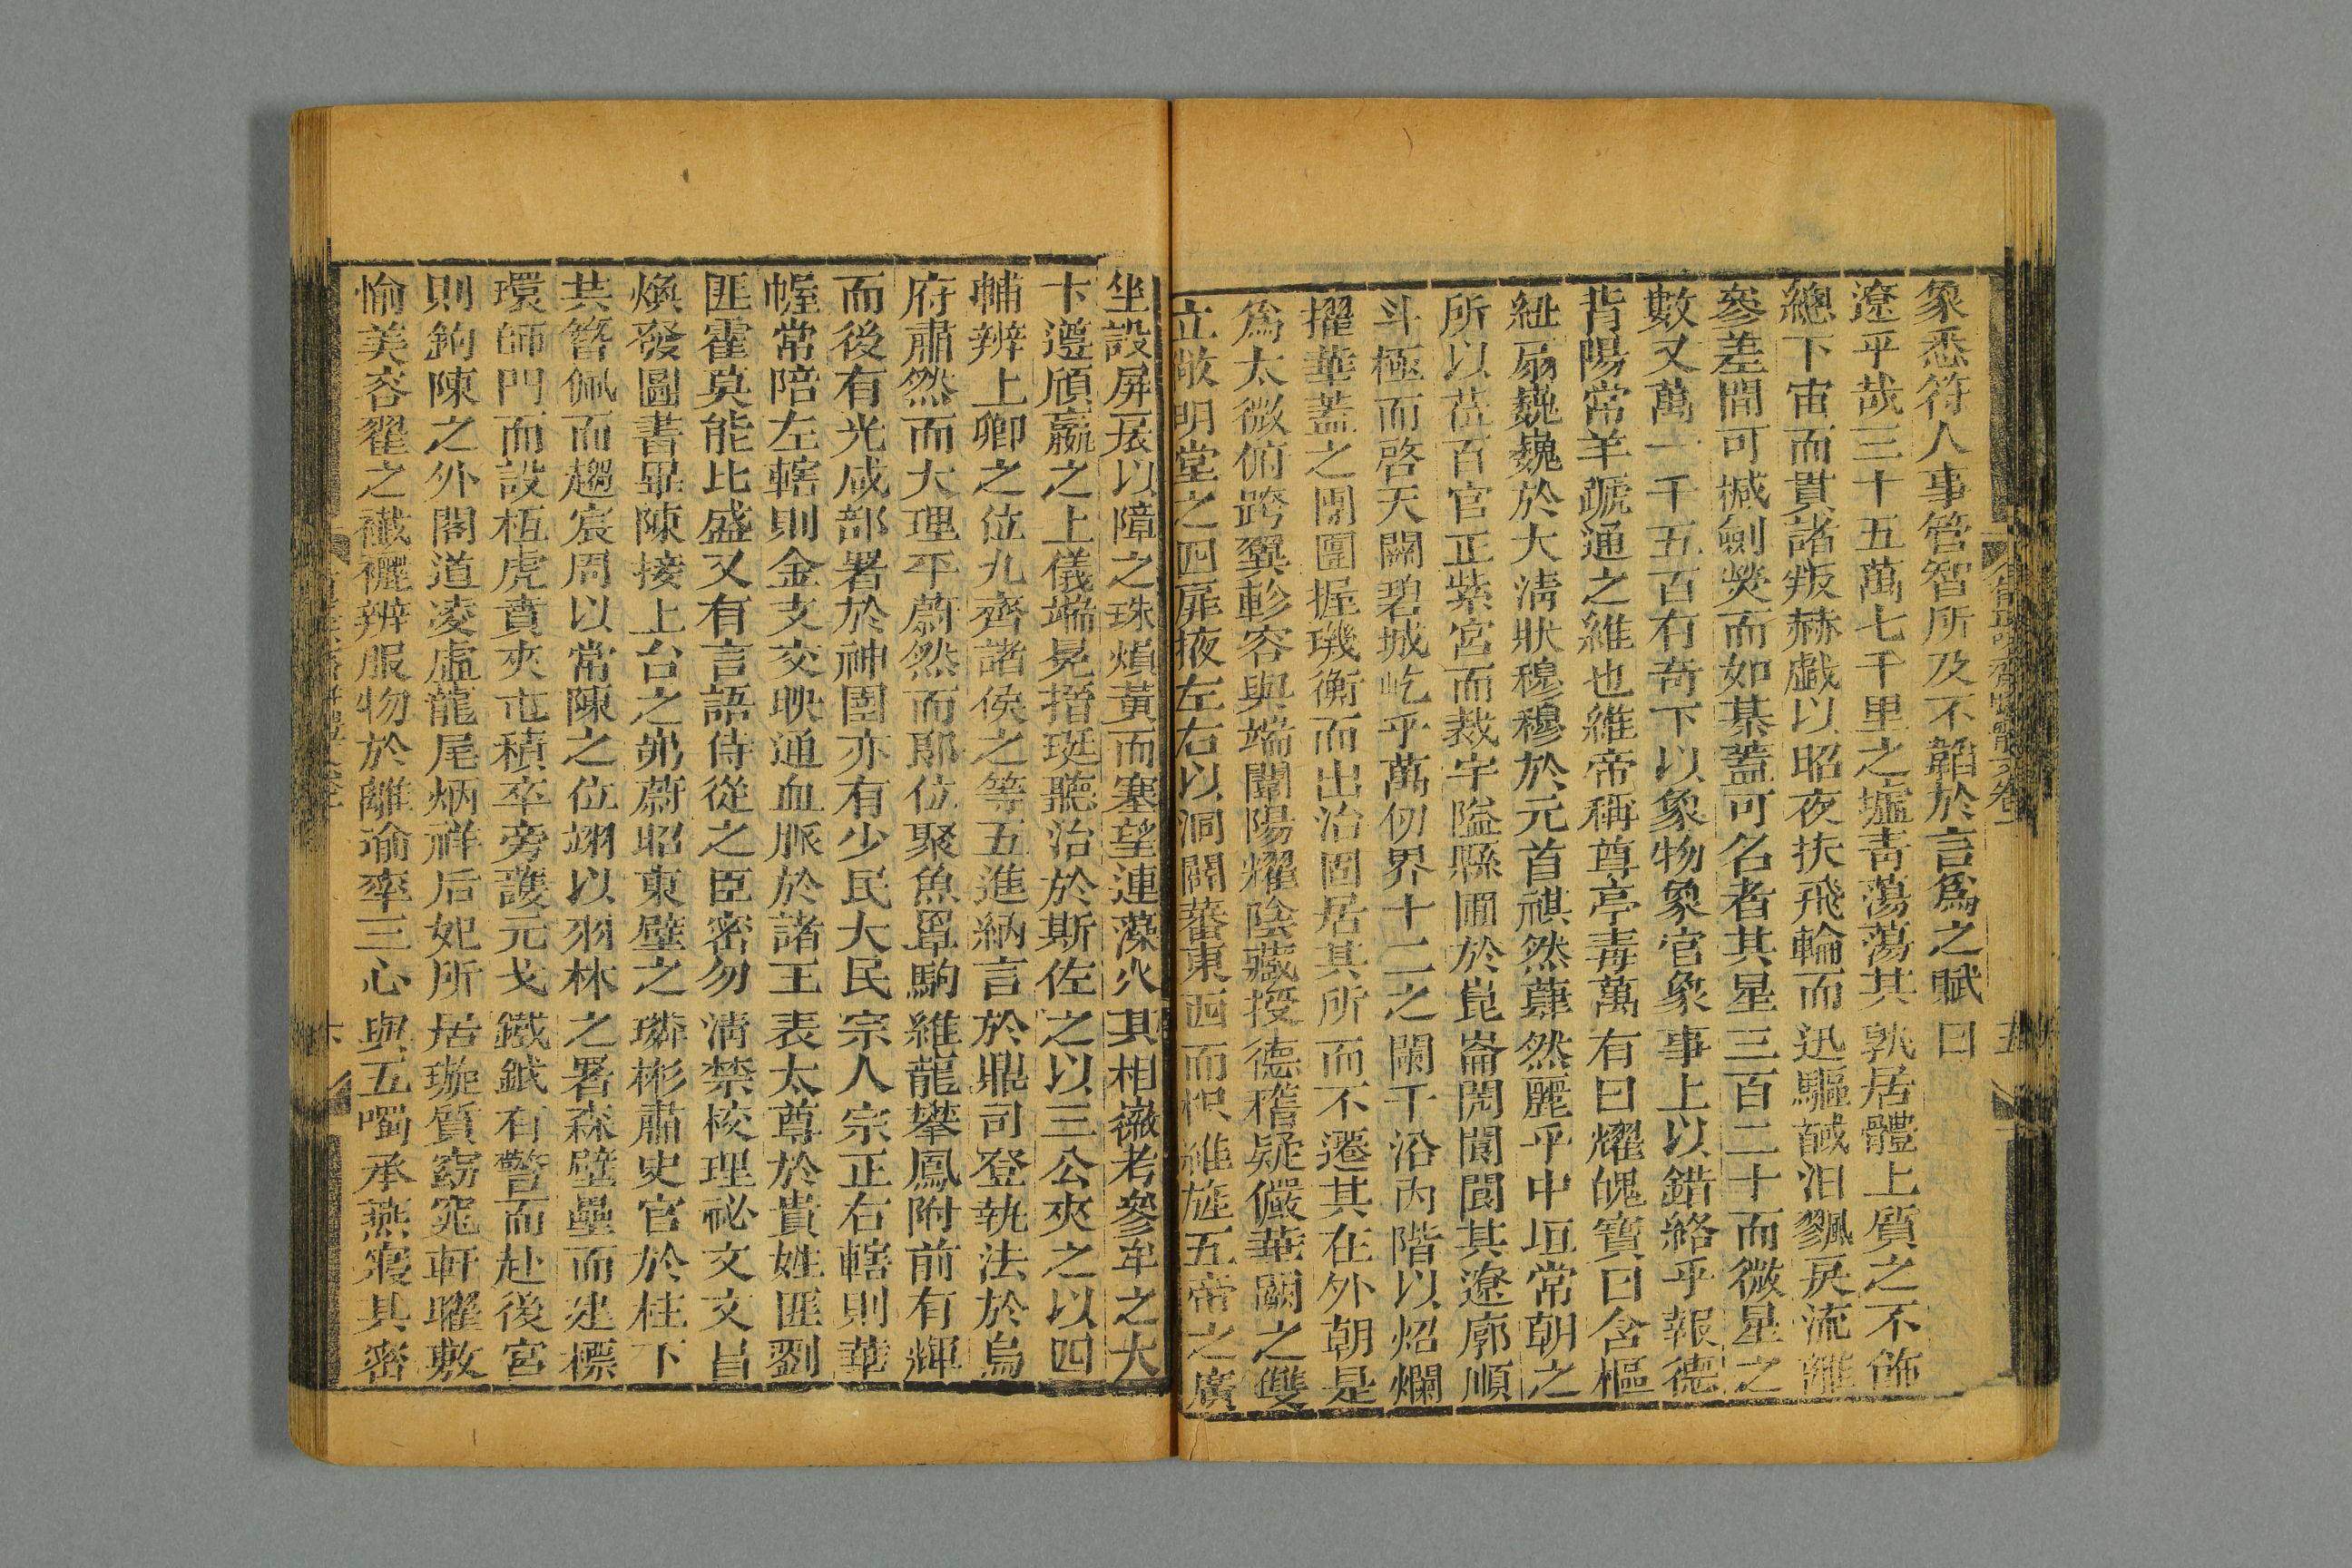 象悉符人事管智所及不韜於言爲之賦曰
遼乎哉三十五萬七千里之墟靑蕩蕩其孰居體上質之不飾
總下宙而貫諸叛赫戱以昭夜扶飛輪而迅驅䤋汨飄戾流離
參差間可摵劍熒而如棊蓋可名者其星三百二十而微星之
數又萬一千五百有奇下以象物象官象事上以錯絡乎報德
背陽常羊蹏通之維也維帝稱尊亭毒萬有曰燿魄寶曰含樞
紐扇巍巍於大淸狀穆穆於元首祺然蕼然麗乎中垣常朝之
所以莅百官正紫宮而裁宇隘縣圃於崑崙閌閬閬其遼廓順
斗極而啓天闕碧城屹乎萬仞界十二之闌干沿內階以炤爛
擢華蓋之團團握璣衡而出治固居其所而不遷其在外朝是
爲太微俯跨翼軫容與端闈陽耀陰藏授德稽疑儼華闕之雙
立敞明堂之四扉掖左右以洞闢蕃東西而枳維旌五帝之廣
坐設屛扆以障之珠熉黃而塞望連藻火其相嶶考參牟之大
卞遵頎嬴之上儀端晃搢珽聽治於斯佐之以三公夾之以四
輔辨上卿之位九齊諸侯之等五進納言於鼎司登執法於烏
府肅然而大理平蔚然而郞位聚魚罩駒維龍攀鳳附前有輝
而後有光咸部署於神圉亦有少民大民宗人宗正右轄則華
幄常陪左轄則金支交映通血脈於諸王表太尊於貴姓匪劉
匪霍莫能比盛又有言語侍從之臣密勿淸禁校理祕文文昌
煥發圖書畢陳接上台之茀蔚昭東壁之璘彬肅史官於柱下
共簪佩而趨宸周以常陳之位翊以羽林之署森壁壘而建標
環師門而設枑虎賁夾屯積卒旁護元戈鐵鉞有警而赴後宮
則鉤陳之外閣道凌虛龍尾炳祥后妃所居璇質窈窕軒曜敷
愉美容翟之襳襹辨服物於離渝率三心與五噣承燕寢其密